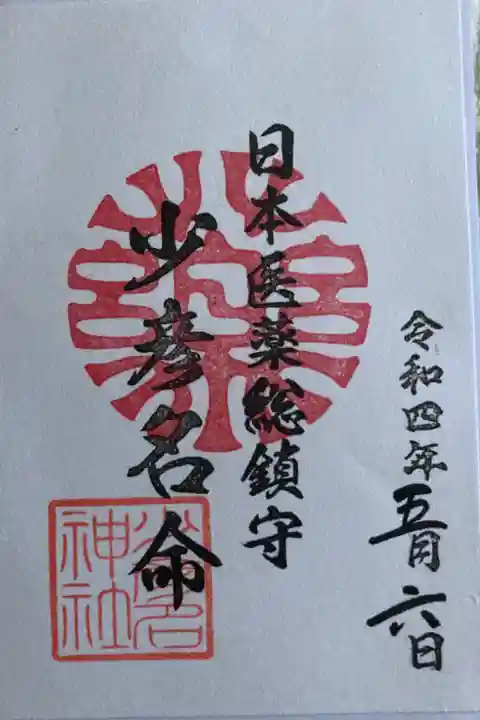 令和四年五月六日
日本医薬総鎮守
少彦名命
少彦名
神社